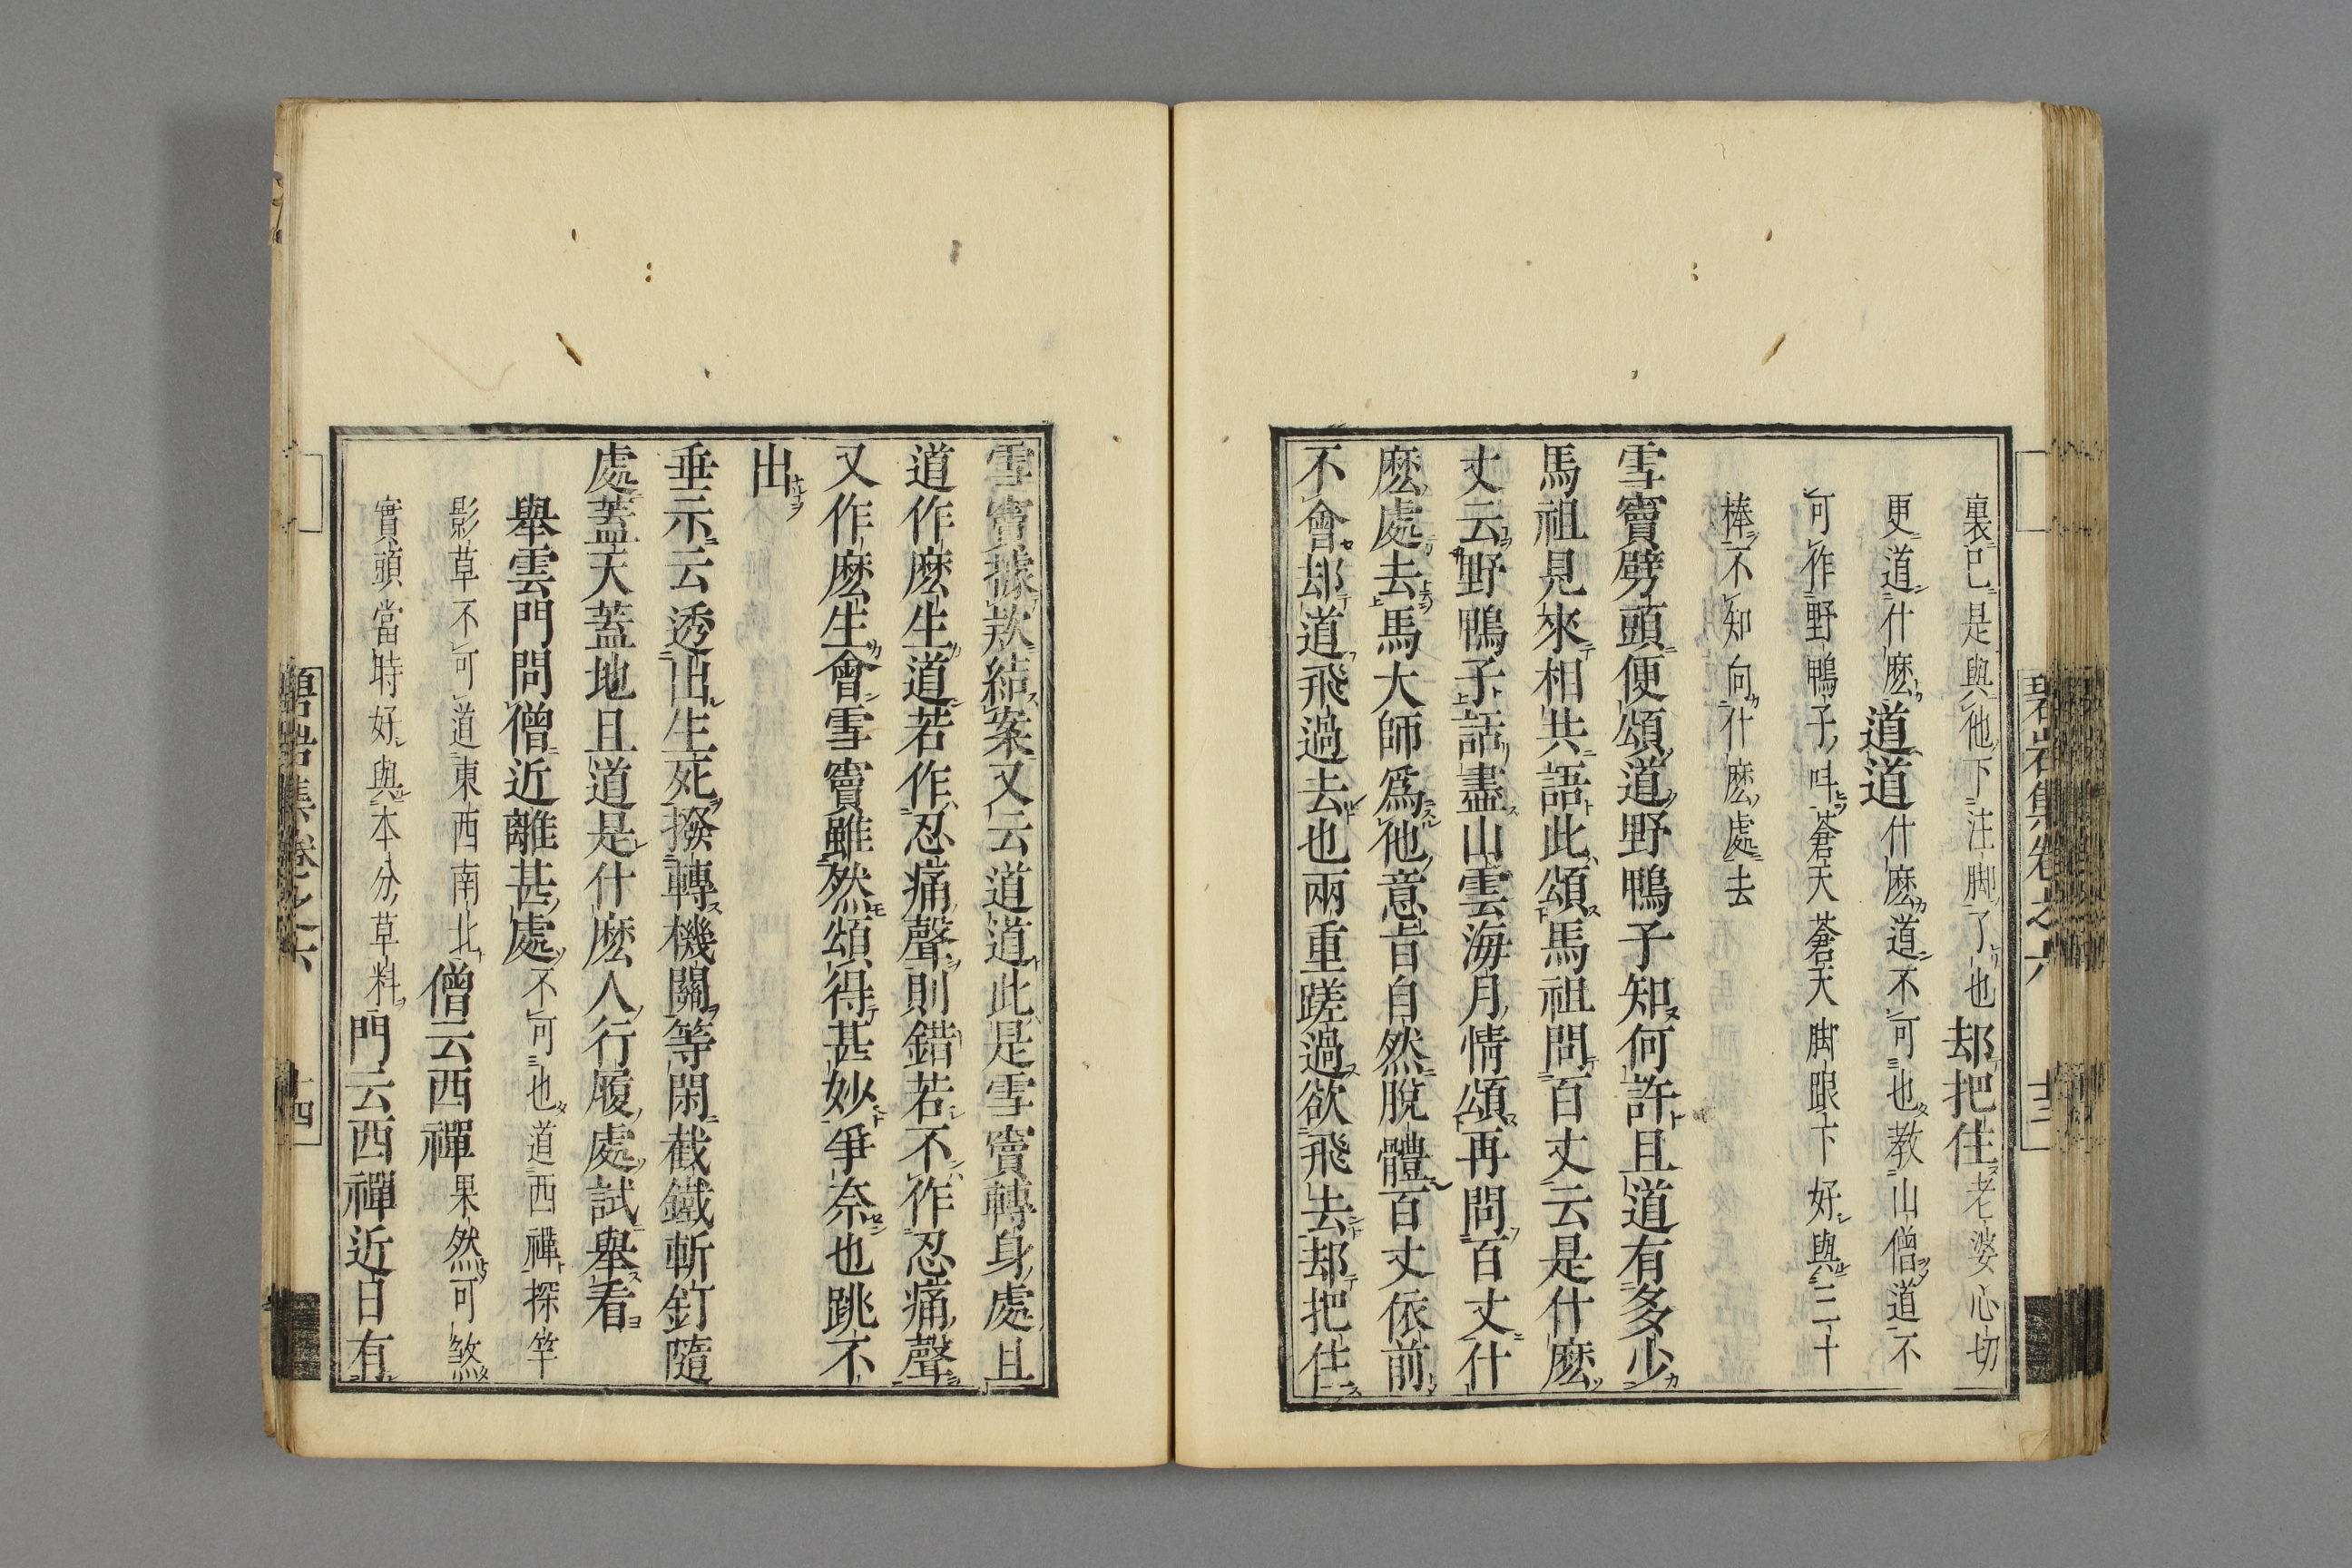 裏巳是與他下注脚了也却把住老婆心切
更道什麽道道什麽道不可也教山僧道不
可作野鴨子呌蒼天蒼天脚跟下好與三十
棒不知向什麽處去
雪竇劈頭便頌道野鴨子知何許且道有多少
馬祖見來相共語此頌馬祖問百丈云是什麽
丈云野鴨子話盡山雲海月情頌再問百丈什
麽處去馬大師爲他意旨自然脫體百丈依前
不會却道飛過去也兩重蹉過欲飛去却把住
雪竇據欵結案又云道道此是雪竇轉身處且
道作麽生道若作忍痛聲則錯若不作忍痛聲
又作麽生會雪竇雖然頌得甚妙爭奈也跳不
出
垂示云透出生死撥轉機關等閑截鐵斬釘隨
處蓋天蓋地且道是什麽人行履處試舉看
舉雲門問僧近離甚處不可也道西禪探竿
影草不可道東西南北僧云西禪果然可煞
實頭當時好與本分草料門云西禪近日有
碧岩集卷之六
十三
碧岩集卷之六
十四